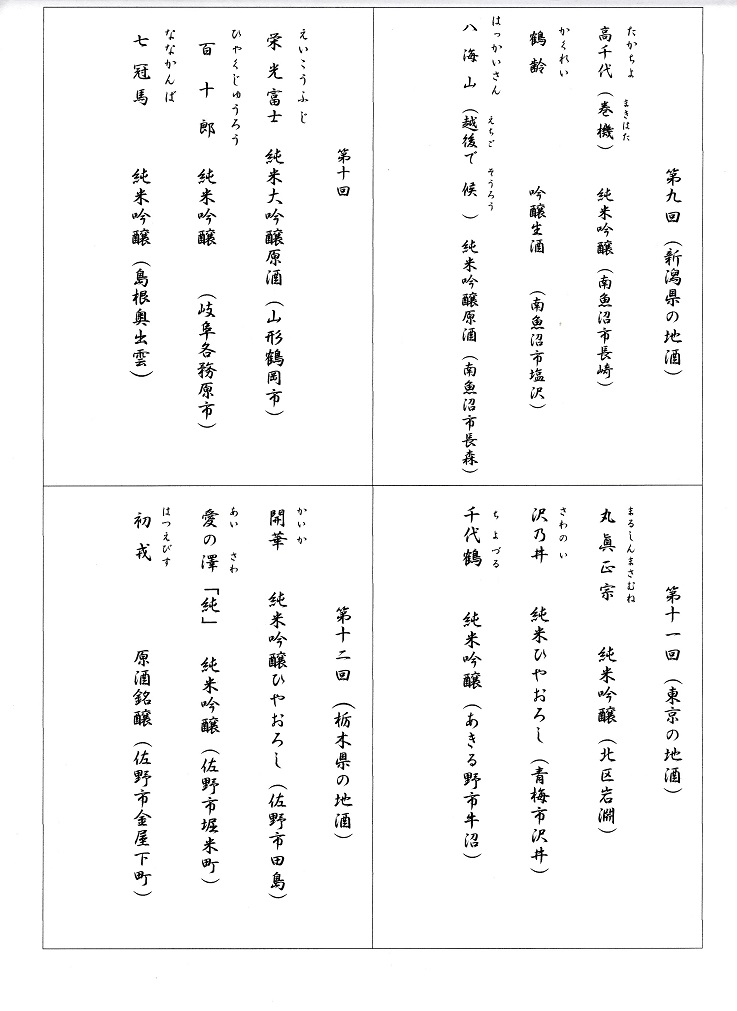 第九回　（新潟県の地酒）
たかちよ　まきはた
高千代（巻機）　純米吟醸（南魚沼市長崎）
かくれい
鶴齢　吟醸生酒　（南魚沼市塩沢）
はっかいさん　えちご　そうろう
八海山　（越後で候）　純米吟醸原酒（南魚沼市長森）
第十回
えいこうふじ
栄光富士　純米大吟醸原酒（山形鶴岡市）
ひゃくじゅうろう
百十郎　純米吟醸　（岐阜各務原市）
ななかんば
七冠馬　純米吟醸（島根奥出雲）
第十一回　（東京の地酒）
まるしんまさむね
丸眞正宗　純米吟醸（北区岩淵）
さわのい
沢乃井　純米ひやおろし（青梅市沢井）
ちよづる
千代鶴　純米吟醸（あきる野市牛沼）
第十二回　（栃木県の地酒）
かいか
開華　純米吟醸ひやおろし（佐野市田島）
あい　さわ
愛の澤「純」　純米吟醸（佐野市堀米町）
はつえびす
初戎　原酒銘醸（佐野市金屋下町）